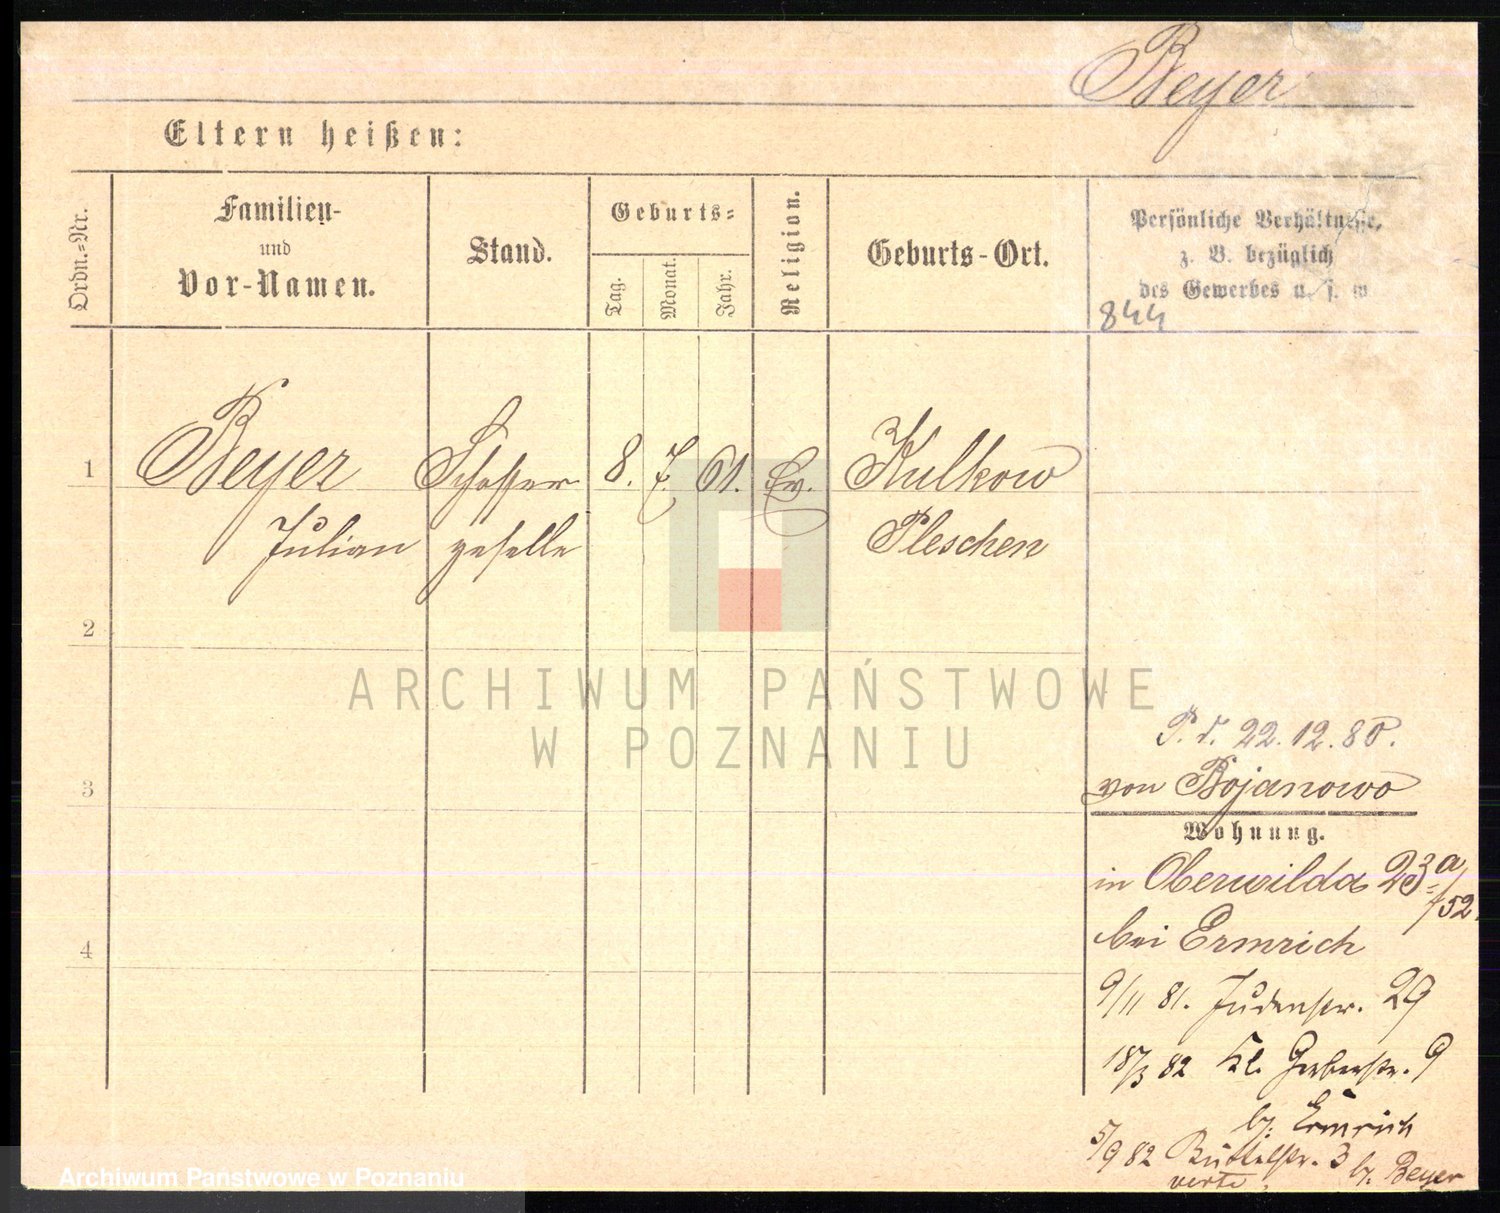 Beyer
Eltern heißen:
Ordn.-Nr.
Familien-
und
Vor-Namen.
Stand.
Geburts-
Tag.
Monat.
Jahr.
Religion.
Geburts-Ort.
Persönliche Verhältnisse,
z. B. bezüglich
des Gewerbes u. s. w.
844
1 Beyer Schlosser 8. 7. 61. Ev. Kulkow
Julian geselle Pleschen
2
ARCHIWUM PAŃSTWOWE
W POZNANIU
P. d. 22. 12. 80.
3 von Bojanowo
Wohnung.
in Oberwilda 23a/52.
4 bei Ermrich
9/11 81. Judenstr. 29
18/3 82 Kl. Gerberstr. 9
b/. Ermrich
5/9 82 Büttelstr. 3 b/. Beyer
verte
Archiwum Państwowe w Poznaniu